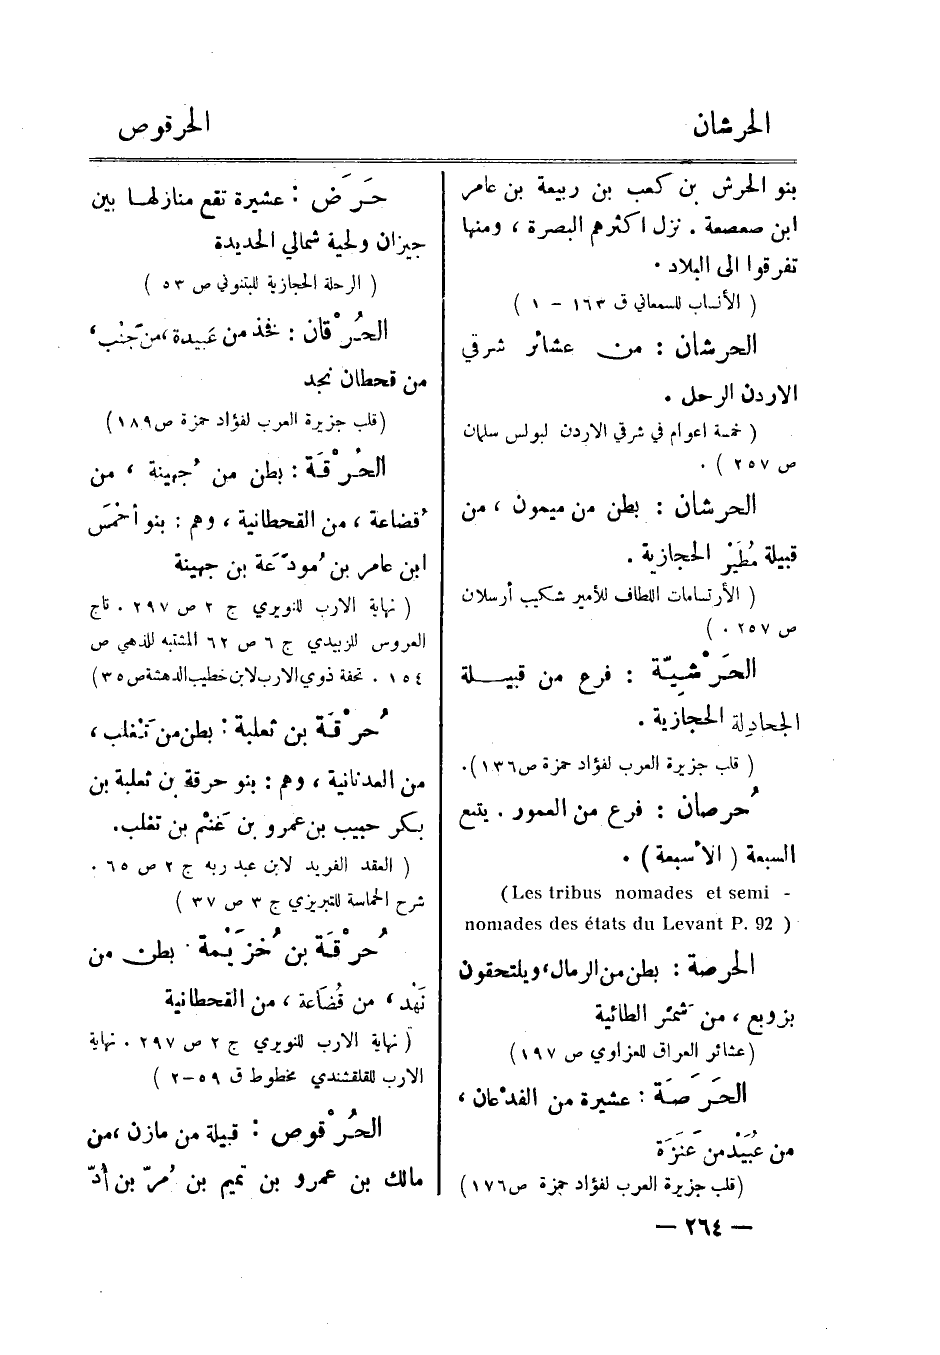 الحرشان
الحرقوص
بنو الحرش بن كعب بن ربيعة بن عامر
ابن صعصعة . نزل اكثرهم البصرة ، ومنها
تفرقوا الى البلاد .
( الأنساب للسمعاني ق ١٦٣ – ١ )
الحرشان : من عشائر شرقي
الاردن الرحل .
( خمسة اعوام في شرقي الاردن لبولس سلمان
ص ٢٥٧ ) .
الحرشان : بطن من ميمون ، من
قبيلة مُطَيْر الحجازية .
( الأرتسامات اللطاف للأمير شكيب أرسلان
ص ٢٥٧ . )
الحَرْشِيّة : فرع من قبيلة
الجحادلة الحجازية .
( قلب جزيرة العرب لفؤاد حمزة ص١٣٦ ).
حُرصان : فرع من العمور . يتبع
السبعة ( الأسبعة ) .
(Les tribus nomades et semi -
nomades des états du Levant P. 92 )
الحرصة : بطن من الرمال، ويلتحقون
بزوبع ، من شمَّر الطائية
(عشائر العراق للعزاوي ص ١٩٧ )
الحَرَصَة : عشيرة من الفدْعان ،
من عُبَيْد من عَنَزَة
(قلب جزيرة العرب لفؤاد حمزة ص١٧٦ )
حَرَض : عشيرة تقع منازلها بين
جيزان ولحية شمالي الحديدة
( الرحلة الحجازية للبتنوني ص ٥٣ )
الحُرْقان : فخذ من عَبيدة ،من جَنْب ،
من قحطان نجد
(قلب جزيرة العرب لفؤاد حمزة ص١٨٩ )
الحُرْقَة : بطن من جُهينة ، من
قُضاعة ، من القحطانية ، وهم : بنو أحْمَس
ابن عامر بن مُودَّعة بن جهينة
( نهاية الارب للنويري ج ٢ ص ٢٩٧ . تاج
العروس للزبيدي ج ٦ ص ٦٢ المشتبه للذهبي ص
١٥٤ . تحفة ذوي الارب لابن خطيب الدهشة ص٣٥ )
حُرْقَة بن ثعلبة : بطن من تَغْلب ،
من العدنانية ، وهم : بنو حرقة بن ثعلبة بن
بكر حبيب بن عمرو بن غَنْم بن تغلب .
( العقد الفريد لابن عبد ربه ج ٢ ص ٦٥ .
شرح الحماسة للتبريزي ج ٣ ص ٣٧ )
حُرْقَة بن خُزَيْمة : بطن من
نَهْد ، من قُضَاعة ، من القحطانية
( نهاية الارب للنويري ج ٢ ص ٢٩٧ . نهاية
الارب للقلقشندي مخطوط ق ٥٩–٢ )
الحُرْقوص : قبيلة من مازن ،من
مالك بن عمرو بن تميم بن مُرّ بن أدّ
— ٢٦٤ —